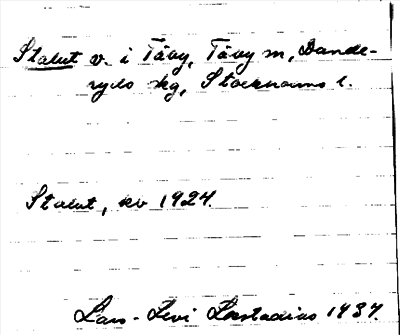 Stalut v. i Täby, Täby sn, Dande-
ryds skg, Stockholms l.
Stalut, kv 1924.
Lars-Levi Læstadius 1937.